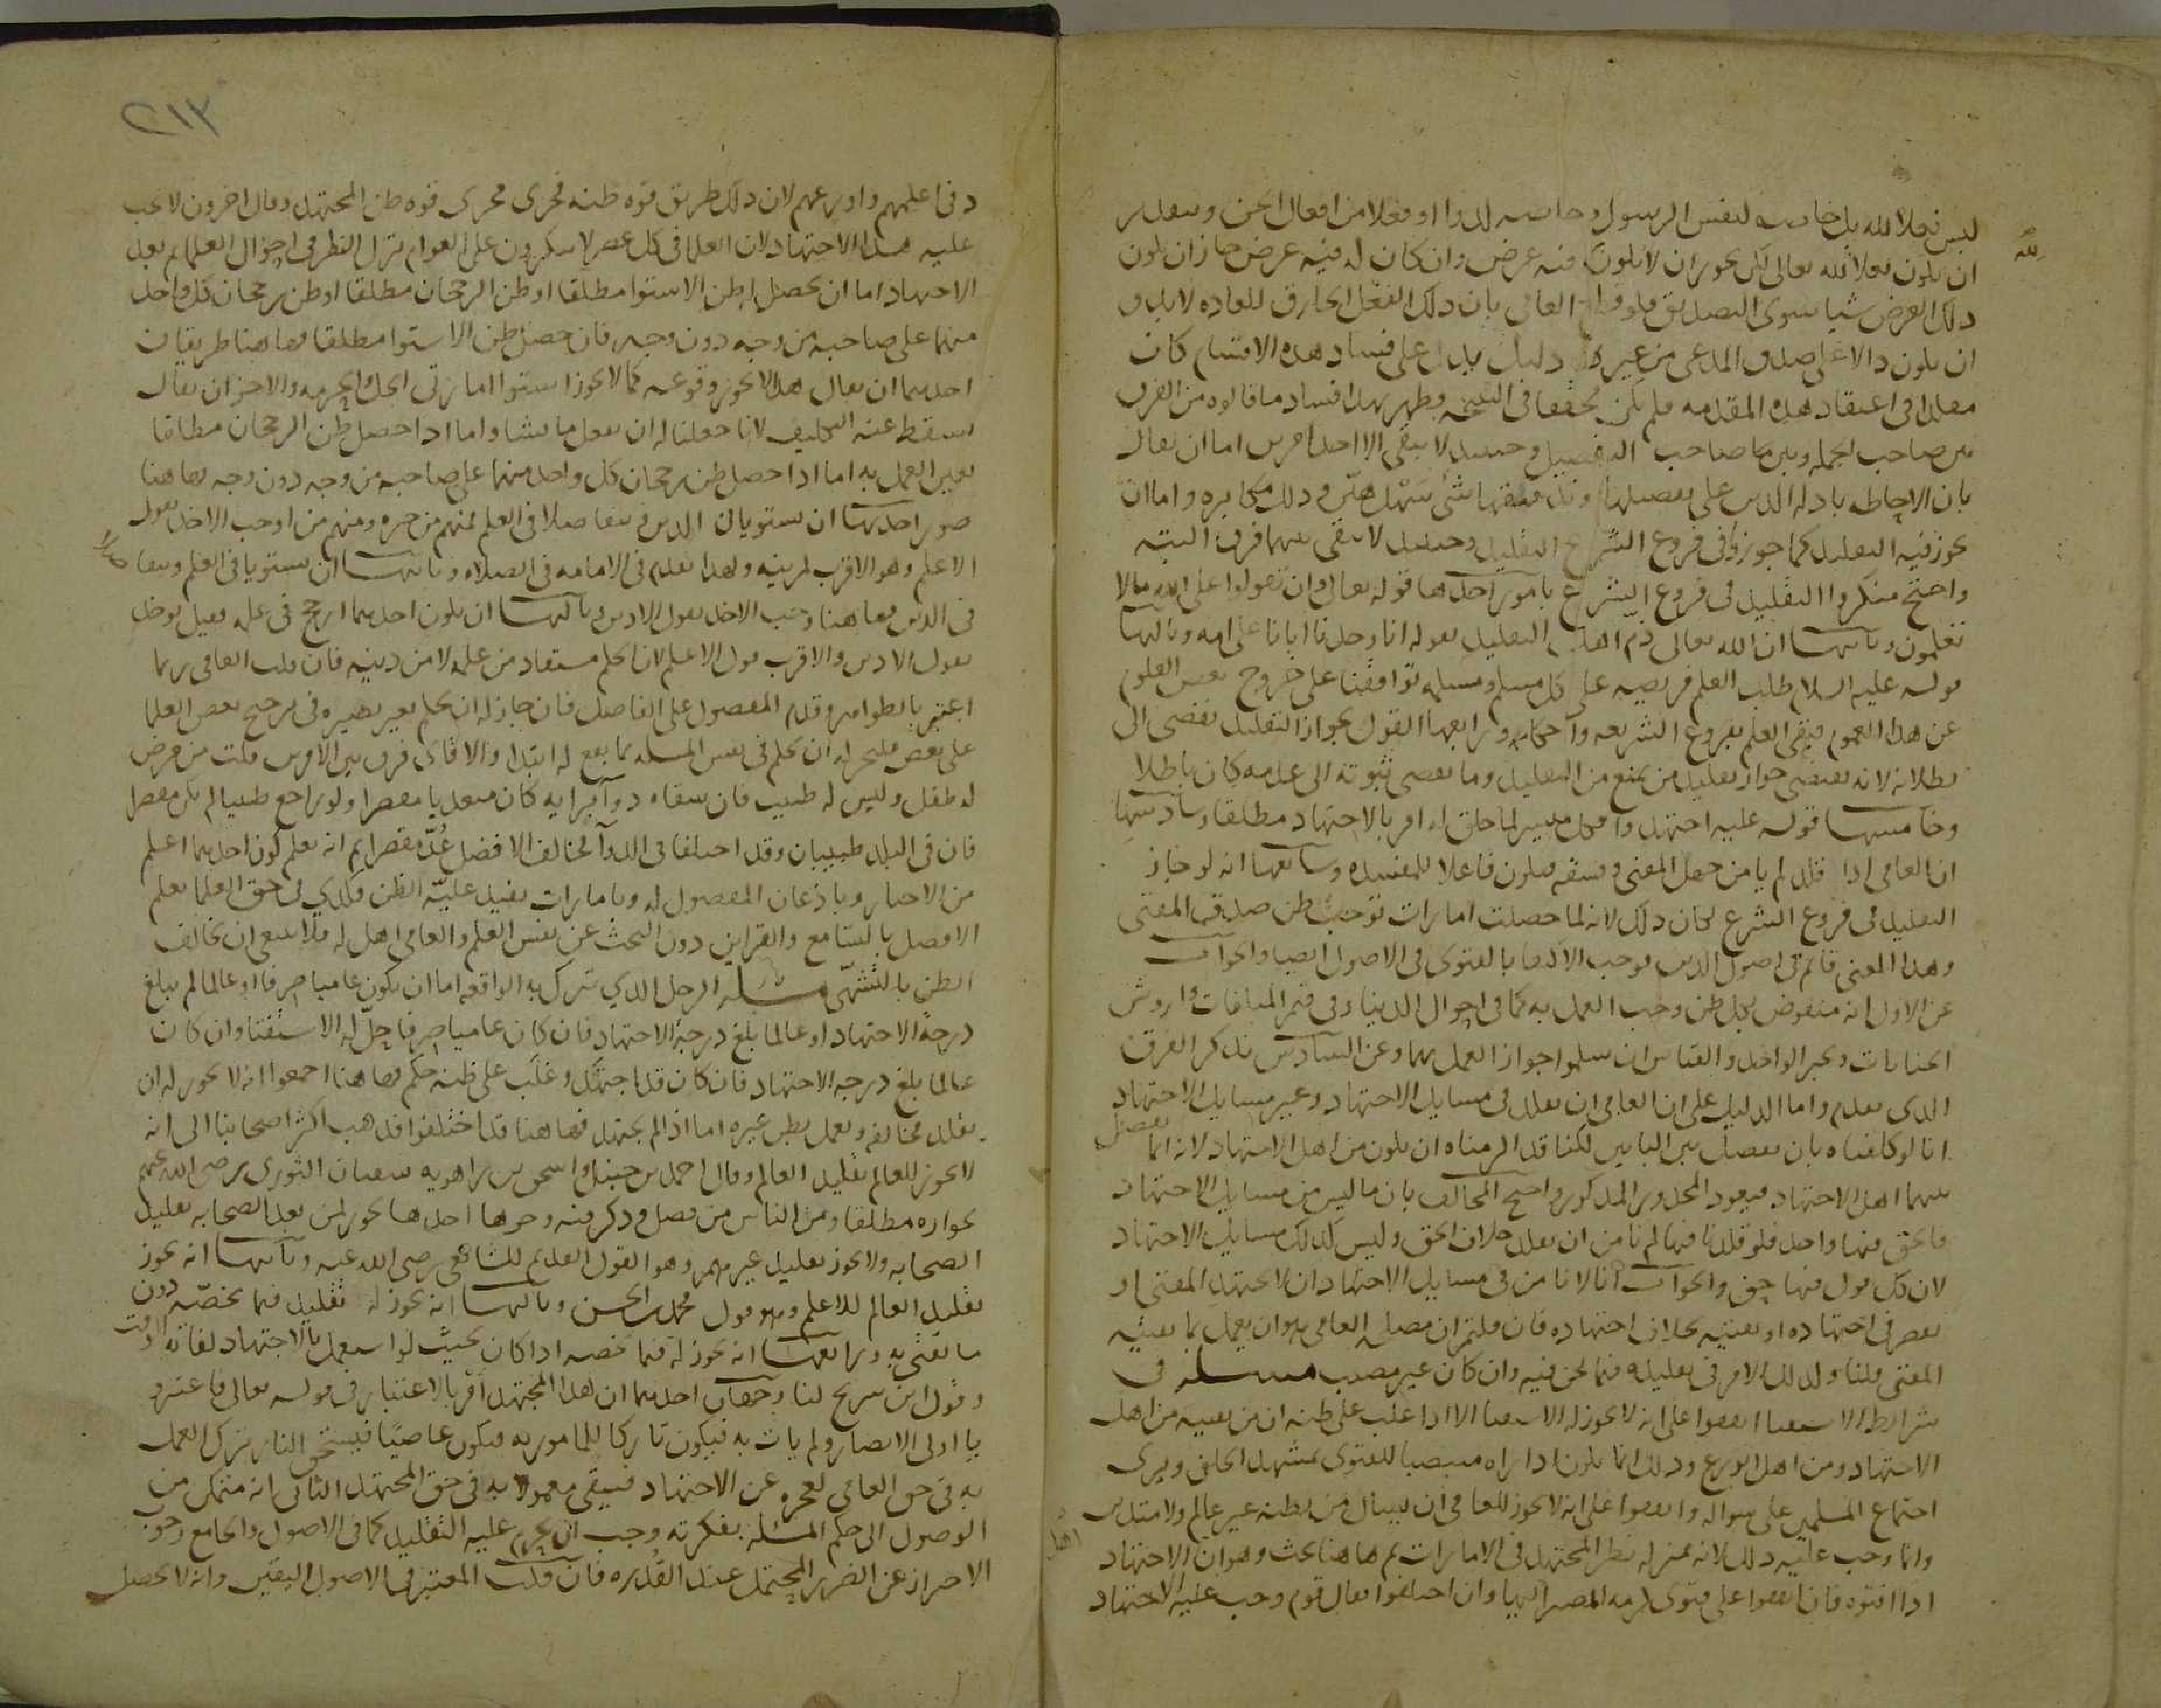 ليس فعلا لله بل خاصيه لنفس الرسول او خاصيه لدوا او فعلا من افعال الجن وبتقدير
لله
ان يكون فعلا لله تعالى لكن يجوز ان لا يكون فيه غرض وان كان له فيه غرض جاز ان يكون
ذلك الغرض شيا سوى التصديق فلو العامى بان ذلك الفعل الخارق للعاده لا بد و
ان يكون دالا على صدق المدعى من غير دليل يدل على فساد هذه الاقسام كان
مقلدا فى اعتقاد هذه المقدمه فلم يكن محققا فى النتيجه وظهر بهذا فساد ما قالوه من الفرق
بين صاحب الجمله وبين صاحب التفصيل وحينيذ لا يبقى الا احد امرين اما ان يقال
بان الاحاطه بادله الدين على تفصيلها وتدقيقها شى سهل هين وذلك مكابره واما ان
يجوز فيه التقليد كما جوزوا فى فروع الشرع التقليد وحينيذ لا يبقى بينهما فرق البته
واحتج منكروا التقليد فى فروع الشرع بامور احدها قوله تعالى وان تقولوا على الله ما لا
تعلمون وثانيها ان الله تعالى ذم اهل التقليد بقوله انا وجدنا اباءنا على امه وثالثها
قوله عليه السلام طلب العلم فريضه على كل مسلم ومسلمه توافقنا على خروج بعض العلوم
عن هذا العموم فبقى العلم بفروع الشريعه واحكامه ورابعها القول بجواز التقليد يفضى الى
بطلانه لانه يقتضى جواز تقليد من يمنع من التقليد وما يفضى ثبوته الى عدمه كان باطلا
وخامسها قوله عليه اجتهدوا فكل ميسر لما خلق له امر بالاجتهاد مطلقا وسادسها
ان العامى اذا قلد لم يامن جهل المفتى وفسقه فيكون فاعلا للمفسده وسابعها انه لو جاز
التقليد فى فروع الشرع لكان ذلك لانه لما حصلت امارات توجب ظن صدق المفتى
وهذا المعنى قائم فى اصول الدين فوجب الاكتفا بالفتوى فى الاصول ايضا والجواب
عن الاول انه منقوض بكل ظن وجب العمل به كما فى احوال الدنيا وفى قيم المتلفات واروش
الجنايات وبخبر الواحد والقياس ان سلموا جواز العمل بهما وعن السادس نذكر الفرق
الذى تقدم واما الدليل على ان العامى ان يقلد فى مسايل الاجتهاد وغير مسايل الاجتهاد
انا لو كلفناه بان يفصل بين البابين لكنا قد الزمناه ان يكون من اهل الاجتهاد لانه انما يفصل
بينهما اهل الاجتهاد فيعود المحذور المذكور واحتج المخالف بان ما ليس من مسايل الاجتهاد
فالحق فيها واحد فلو قلدنا فيها لم نامن ان نقلد خلاف الحق وليس كذلك مسايل الاجتهاد
لان كل قول فيها حق والجواب انا لا نامن فى مسايل الاجتهاد ان لا يجتهد المفتى او
يقصر فى اجتهاده او يفتيه بخلاف اجتهاده فان قلتم ان مصلحه العامى هو ان يعمل بما يفتيه
المفتى قلنا وكذلك الامر فى تقليده فيما نحن فيه وان كان غير مصيب مسله فى
شرايط الاستفتا اتفقوا على انه لا يجوز له الاستفتا الا اذا غلب على ظنه ان من يفتيه من اهل
الاجتهاد ومن اهل الورع وذلك انما يكون اذا راه منتصبا للفتوى بمشهد الخلق ويرى
اجتماع المسلمين على سواله واتفقوا على انه لا يجوز للعامى ان يسال من يظنه غير عالم ولا متدين
وانما وجب عليه ذلك لانه بمنزله نظر المجتهد فى الامارات ثم هاهنا بحث وهو ان الاجتهاد
اهل
اذا افتوه فان اتفقوا على فتوى لزمه المصير اليها وان اختلفوا فقال قوم وجب عليه الاجتهاد
٢١٣
فى اعلمهم واورعهم لان ذلك طريق قوه ظنه فجرى مجرى قوه ظن المجتهد وقال اخرون لا يجب
عليه هذا الاجتهاد لان العلما فى كل عصر لا ينكرون على العوام ترك النظر فى احوال العلما ثم بعد
الاجتهاد اما ان يحصل ظن الاستوا مطلقا او ظن الرجحان مطلقا او ظن رجحان كل واحد
منهما على صاحبه من وجه دون وجه فان حصل ظن الاستوا مطلقا فهاهنا طريقان
احدهما ان يقال هذا لا يجوز وقوعه كما لا يجوز استوا امارتى الحل والحرمه والاخر ان يقال
يسقط عنه التكليف لانا جعلنا له ان يفعل ما يشا واما اذا حصل ظن الرجحان مطلقا
تعين العمل به اما اذا حصل ظن رجحان كل واحد منهما على صاحبه من وجه دون وجه فهاهنا
صور احديها ان يستويا فى الدين ويتفاضلا فى العلم فمنهم من خيره ومنهم من اوجب الاخذ بقول
الاعلم وهو الاقرب لمزيته ولهذا يقدم فى الامامه فى الصلاه وثانيها ان يستويا فى العلم ويتفاضلا
فى الدين فهاهنا وجب الاخذ بقول الادين وثالثها ان يكون احدهما ارجح فى علمه فقيل يوخذ
بقول الادين والاقرب قول الاعلم لان الحكم مستفاد من علمه لا من دينه فان قلت العامى ربما
اعتبر بالظواهر وقدم المفضول على الفاضل فان جاز له ان يحكم بغير بصيره فى ترجيح بعض العلما
على بعض فليجز له ان يحكم فى نفس المسله بما يقع له ابتدا والا فاى فرق بين الامرين قلت من مرض
له طفل وليس له طبيب فان سقاه دوا برايه كان متعديا مقصرا ولو راجع طبيبا لم يكن مقصرا
فان فى البلد طبيبان وقد اختلفا فى الدوا فخالف الافضل عُدّ مقصرا ثم انه يعلم كون احدهما اعلم
من الاخبار وباذعان المفضول له وبامارات تفيد غلبه الظن فكذى فى حق العلما يعلم
الافضل بالتسامع والقراين دون البحث عن نفس العلم والعامى اهل له فلا ينبغى ان يخالف
الظن بالتشهى مسله الرجل الذى تنزل به الواقعه اما ان يكون عاميا صرفا او عالما لم يبلغ
درجه الاجتهاد او عالما بلغ درجه الاجتهاد فان كان عاميا صرفا حل له الاستفتا وان كان
عالما بلغ درجه الاجتهاد فان كان قد اجتهد وغلب على ظنه حكم فهاهنا اجمعوا انه لا يجوز له ان
يقلد مخالفه ويعمل بظن غيره اما اذا لم يجتهد فهاهنا قد اختلفوا فذهب اكثر اصحابنا الى انه
لا يجوز للعالم تقليد العالم وقال احمد بن حنبل واسحق بن راهويه سفيان الثورى رضى الله عنهم
بجوازه مطلقا ومن الناس من فصل وذكر فيه وجوها احدها يجوز لمن بعد الصحابه تقليد
الصحابه ولا يجوز تقليد غيرهم وهو القول القديم للشافعى رضى الله عنه وثانيها انه يجوز
تقليد العالم للاعلم وهو قول محمد بن الحسن وثالثها انه يجوز له تقليد فيما يخصه دون
ما يفتى به ورابعها انه يجوز له فيما يخصه اذا كان بحيث لو اشتغل بالاجتهاد لفاته الوقت
وقول ابن سريج لنا وجهان احدهما ان هذا المجتهد امر بالاعتبار فى قوله تعالى فاعتبروا
يا اولى الابصار ولم يات به فيكون تاركا للمامور به فيكون عاصيا فيستحق النار ترك العمل
به فى حق العامى لعجزه عن الاجتهاد فيبقى معمولا به فى حق المجتهد الثانى انه متمكن من
الوصول الى حكم المسئله بفكرته وجب ان يحرم عليه التقليد كما فى الاصول والجامع وجوب
الاحتراز عن الضرر المحتمل عند القدره فان قلت المعتبر فى الاصول اليقين وانه لا يحصل